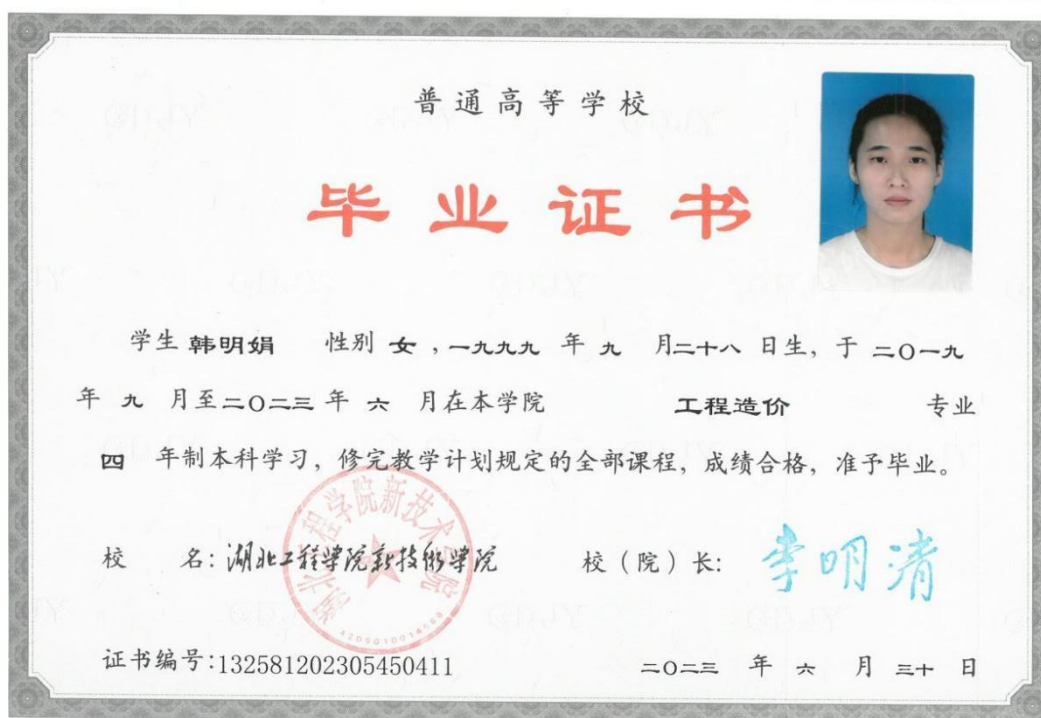 普通高等学校
毕业证书
学生 韩明娟 性别 女，一九九九 年 九 月二十八 日生，于 二〇一九
年 九 月至二〇二三 年 六 月在本学院 工程造价 专业
四 年制本科学习，修完教学计划规定的全部课程，成绩合格，准予毕业。
校 名：湖北工程学院新技術学院 校（院）长：李明清
湖北工程学院新技术学院
证书编号：132581202305450411 二〇二三 年 六 月 三十 日